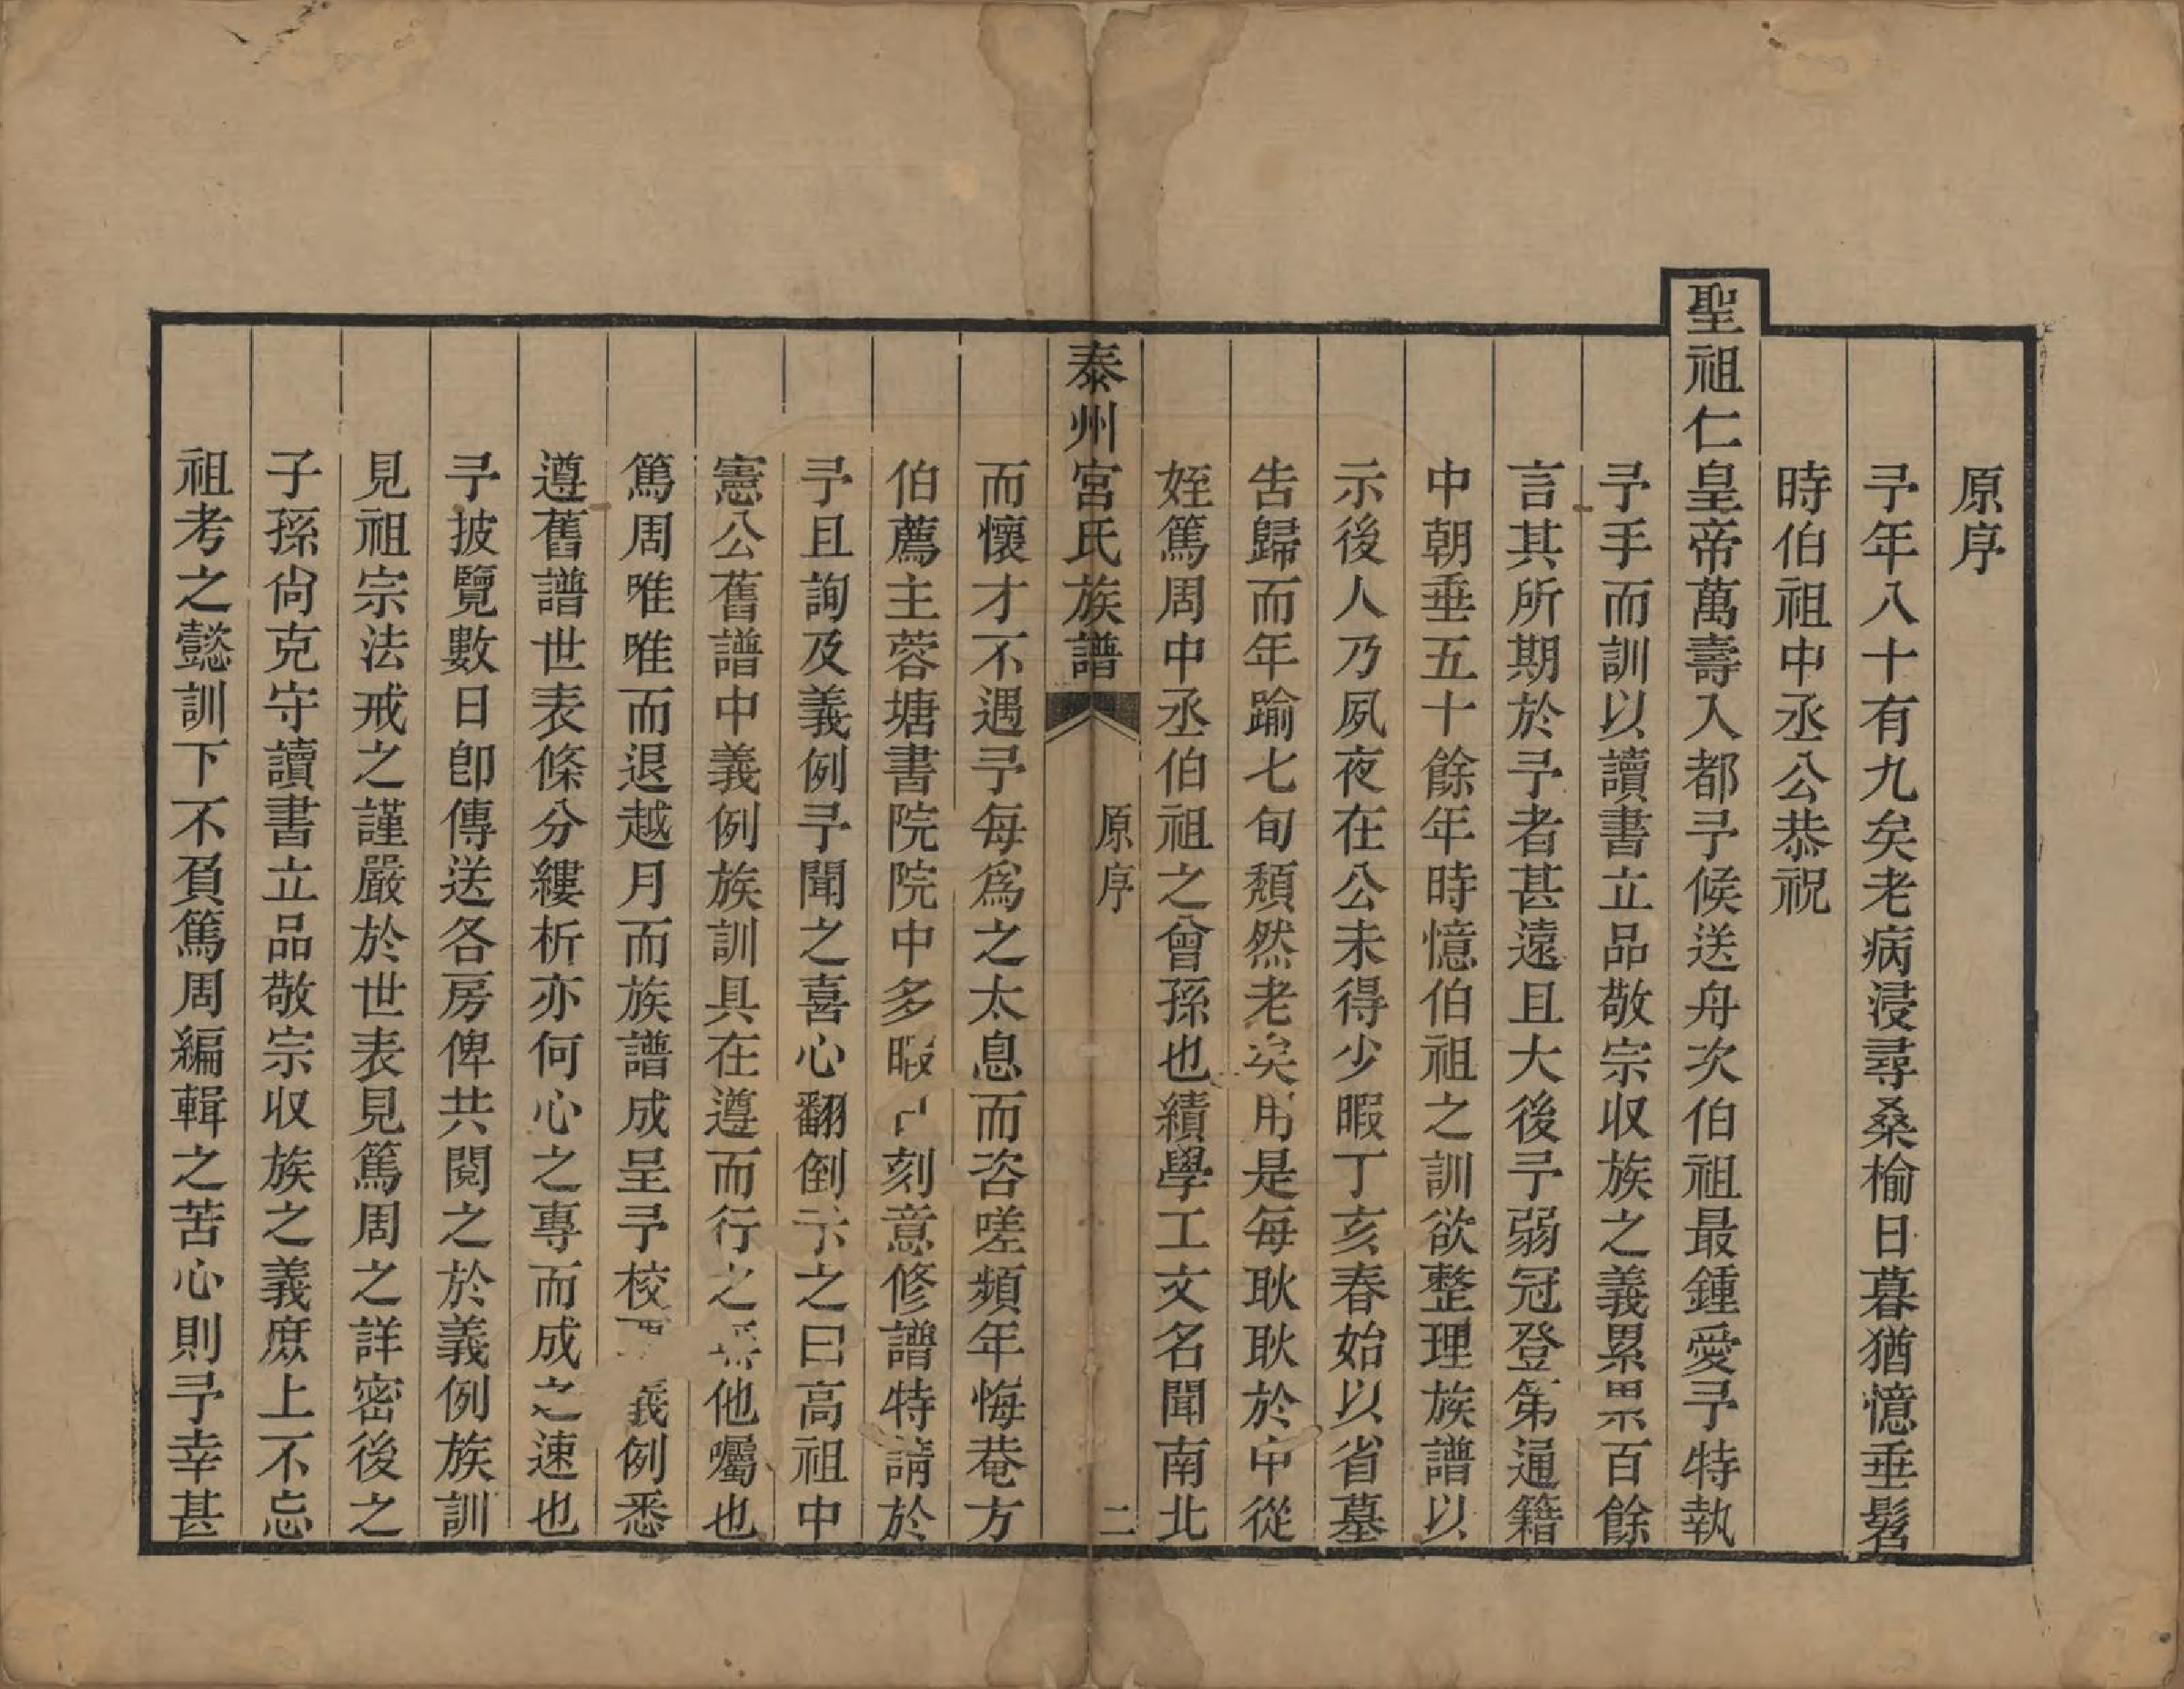 原序
予年八十有九矣老病浸尋桑榆日暮猶憶垂髫
時伯祖中丞公恭祝
聖祖仁皇帝萬壽入都予候送舟次伯祖最鍾愛予特執
予手而訓以讀書立品敬宗収族之義累累百餘
言其所期於予者甚遠且大後予弱冠登第通籍
中朝垂五十餘年時憶伯祖之訓欲整理族譜以
示後人乃夙夜在公未得少暇丁亥春始以省墓
告歸而年踰七旬頹然老矣用是每耿耿於中從
姪篤周中丞伯祖之曾孫也績學工文名聞南北
泰州宮氏族譜
原序
二
而懷才不遇予每爲之太息而咨嗟頻年悔菴方
伯薦主蓉塘書院院中多暇刻意修譜特請於
予且詢及義例予聞之喜心翻倒示之曰高祖中
憲公舊譜中義例族訓具在遵而行之無他囑也
篤周唯唯而退越月而族譜成呈予校義例悉
遵舊譜世表條分縷析亦何心之專而成之速也
予披覽數日卽傳送各房俾共閱之於義例族訓
見祖宗法戒之謹嚴於世表見篤周之詳密後之
子孫尙克守讀書立品敬宗収族之義庶上不忘
祖考之懿訓下不負篤周編輯之苦心則予幸甚